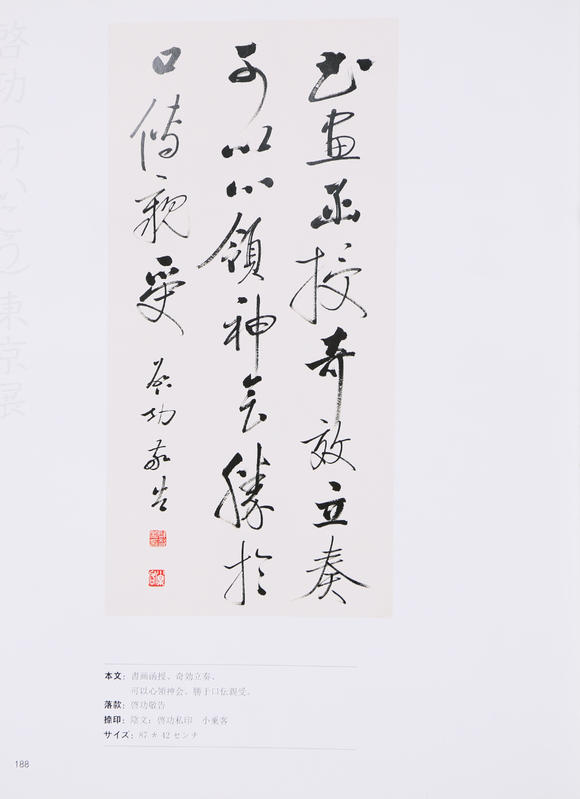 书画函授奇效立奏
可以心领神会勝於
口传親受
启功敬告
啓功（けいこう）東京展
本文：書画函授、奇効立奏、
可以心領神会、勝于口伝親受。
落款：啓功敬告
捺印：陰文：啓功私印　小乗客
サイズ：87 * 42 センチ
188